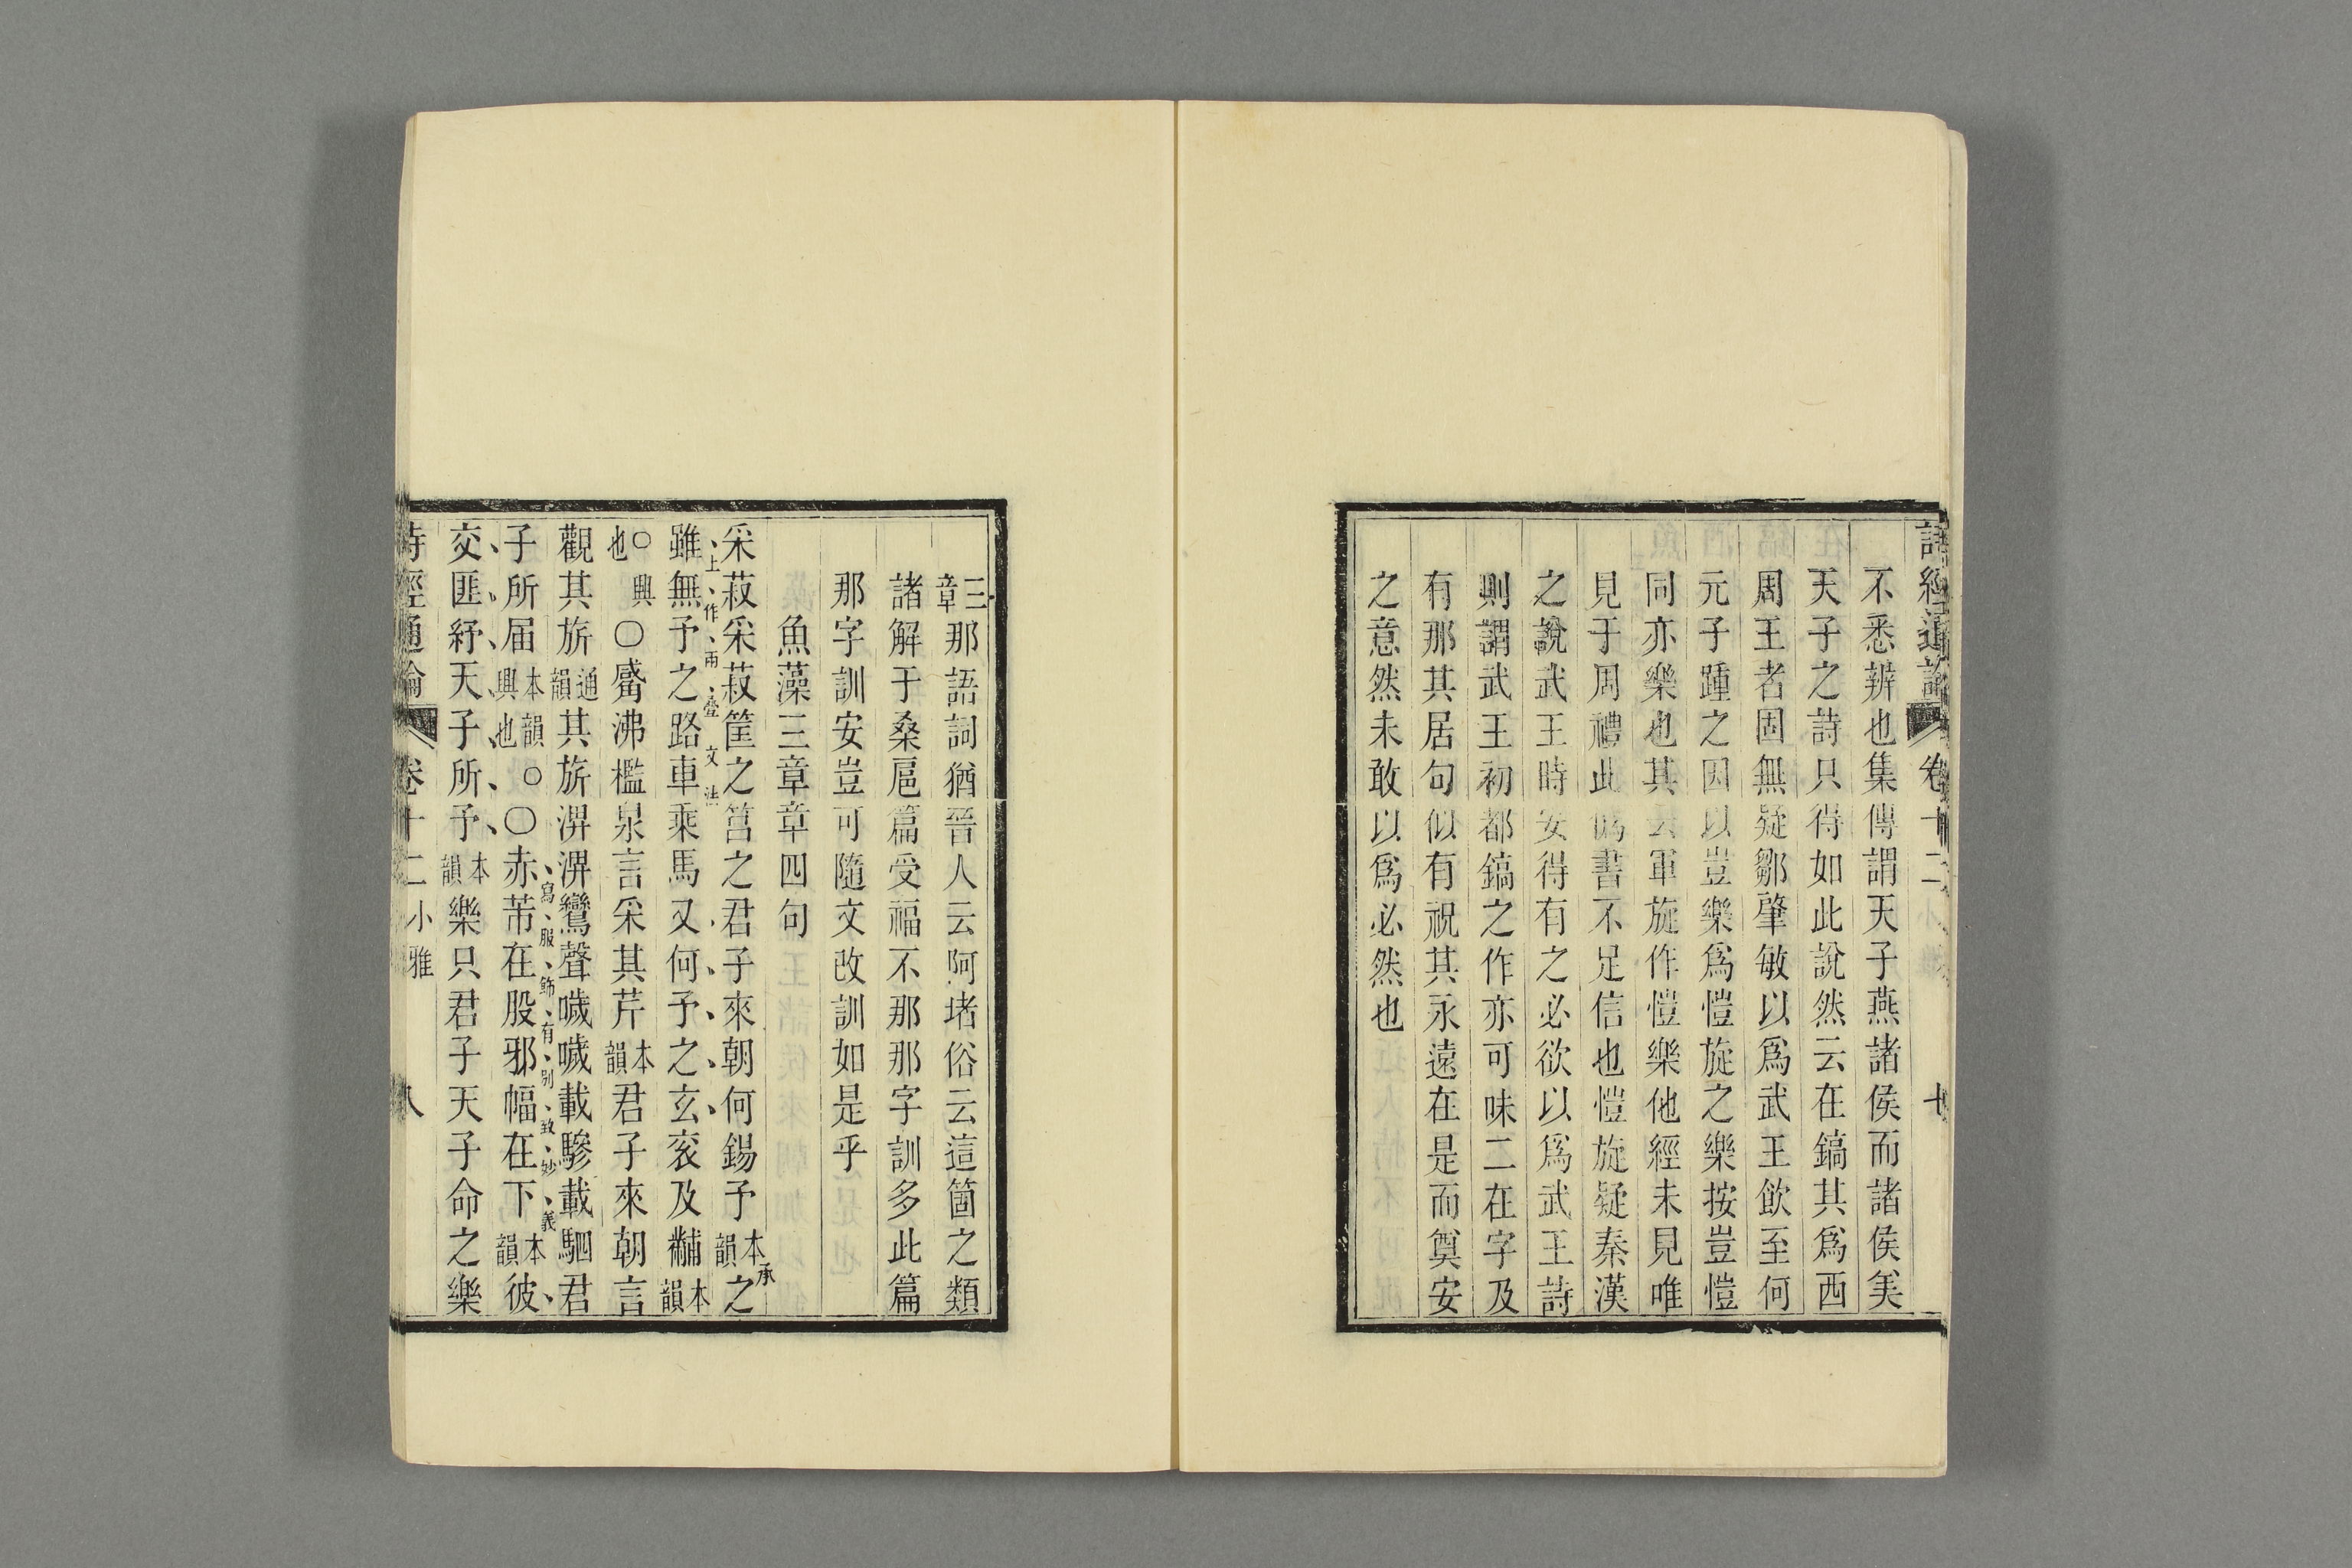 詩經通論 卷十二 小雅 七
不悉辨也集傳謂天子燕諸侯而諸侯美
天子之詩只得如此說然云在鎬其爲西
周王者固無疑鄒肇敏以爲武王飲至何
元子踵之因以豈樂爲愷旋之樂按豈愷
同亦樂也其云軍旋作愷樂他經未見唯
見于周禮此僞書不足信也愷旋疑秦漢
之說武王時安得有之必欲以爲武王詩
則謂武王初都鎬之作亦可味二在字及
有那其居句似有祝其永遠在是而奠安
之意然未敢以爲必然也
三章那語詞猶晉人云阿堵俗云這箇之類
諸解于桑扈篇受福不那那字訓多此篇
那字訓安豈可隨文改訓如是乎
魚藻三章章四句
采菽采菽筐之筥之君子來朝何錫予本韻之
承上作兩疊文法
雖無予之路車乘馬又何予之玄衮及黼本韻
○興也○觱沸檻泉言采其芹本韻君子來朝言
觀其旂通韻其旂淠淠鸞聲嘒嘒載驂載駟君
子所届本韻興也○○赤芾在股邪幅在下本韻彼
寫服飾有別致妙義
交匪紓天子所予本韻樂只君子天子命之樂
詩經通論 卷十二 小雅 八